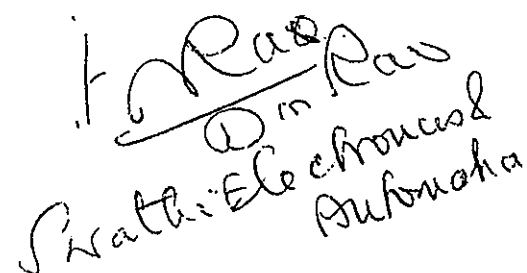 Rao
Rao
Swathi Electronics &
Automation